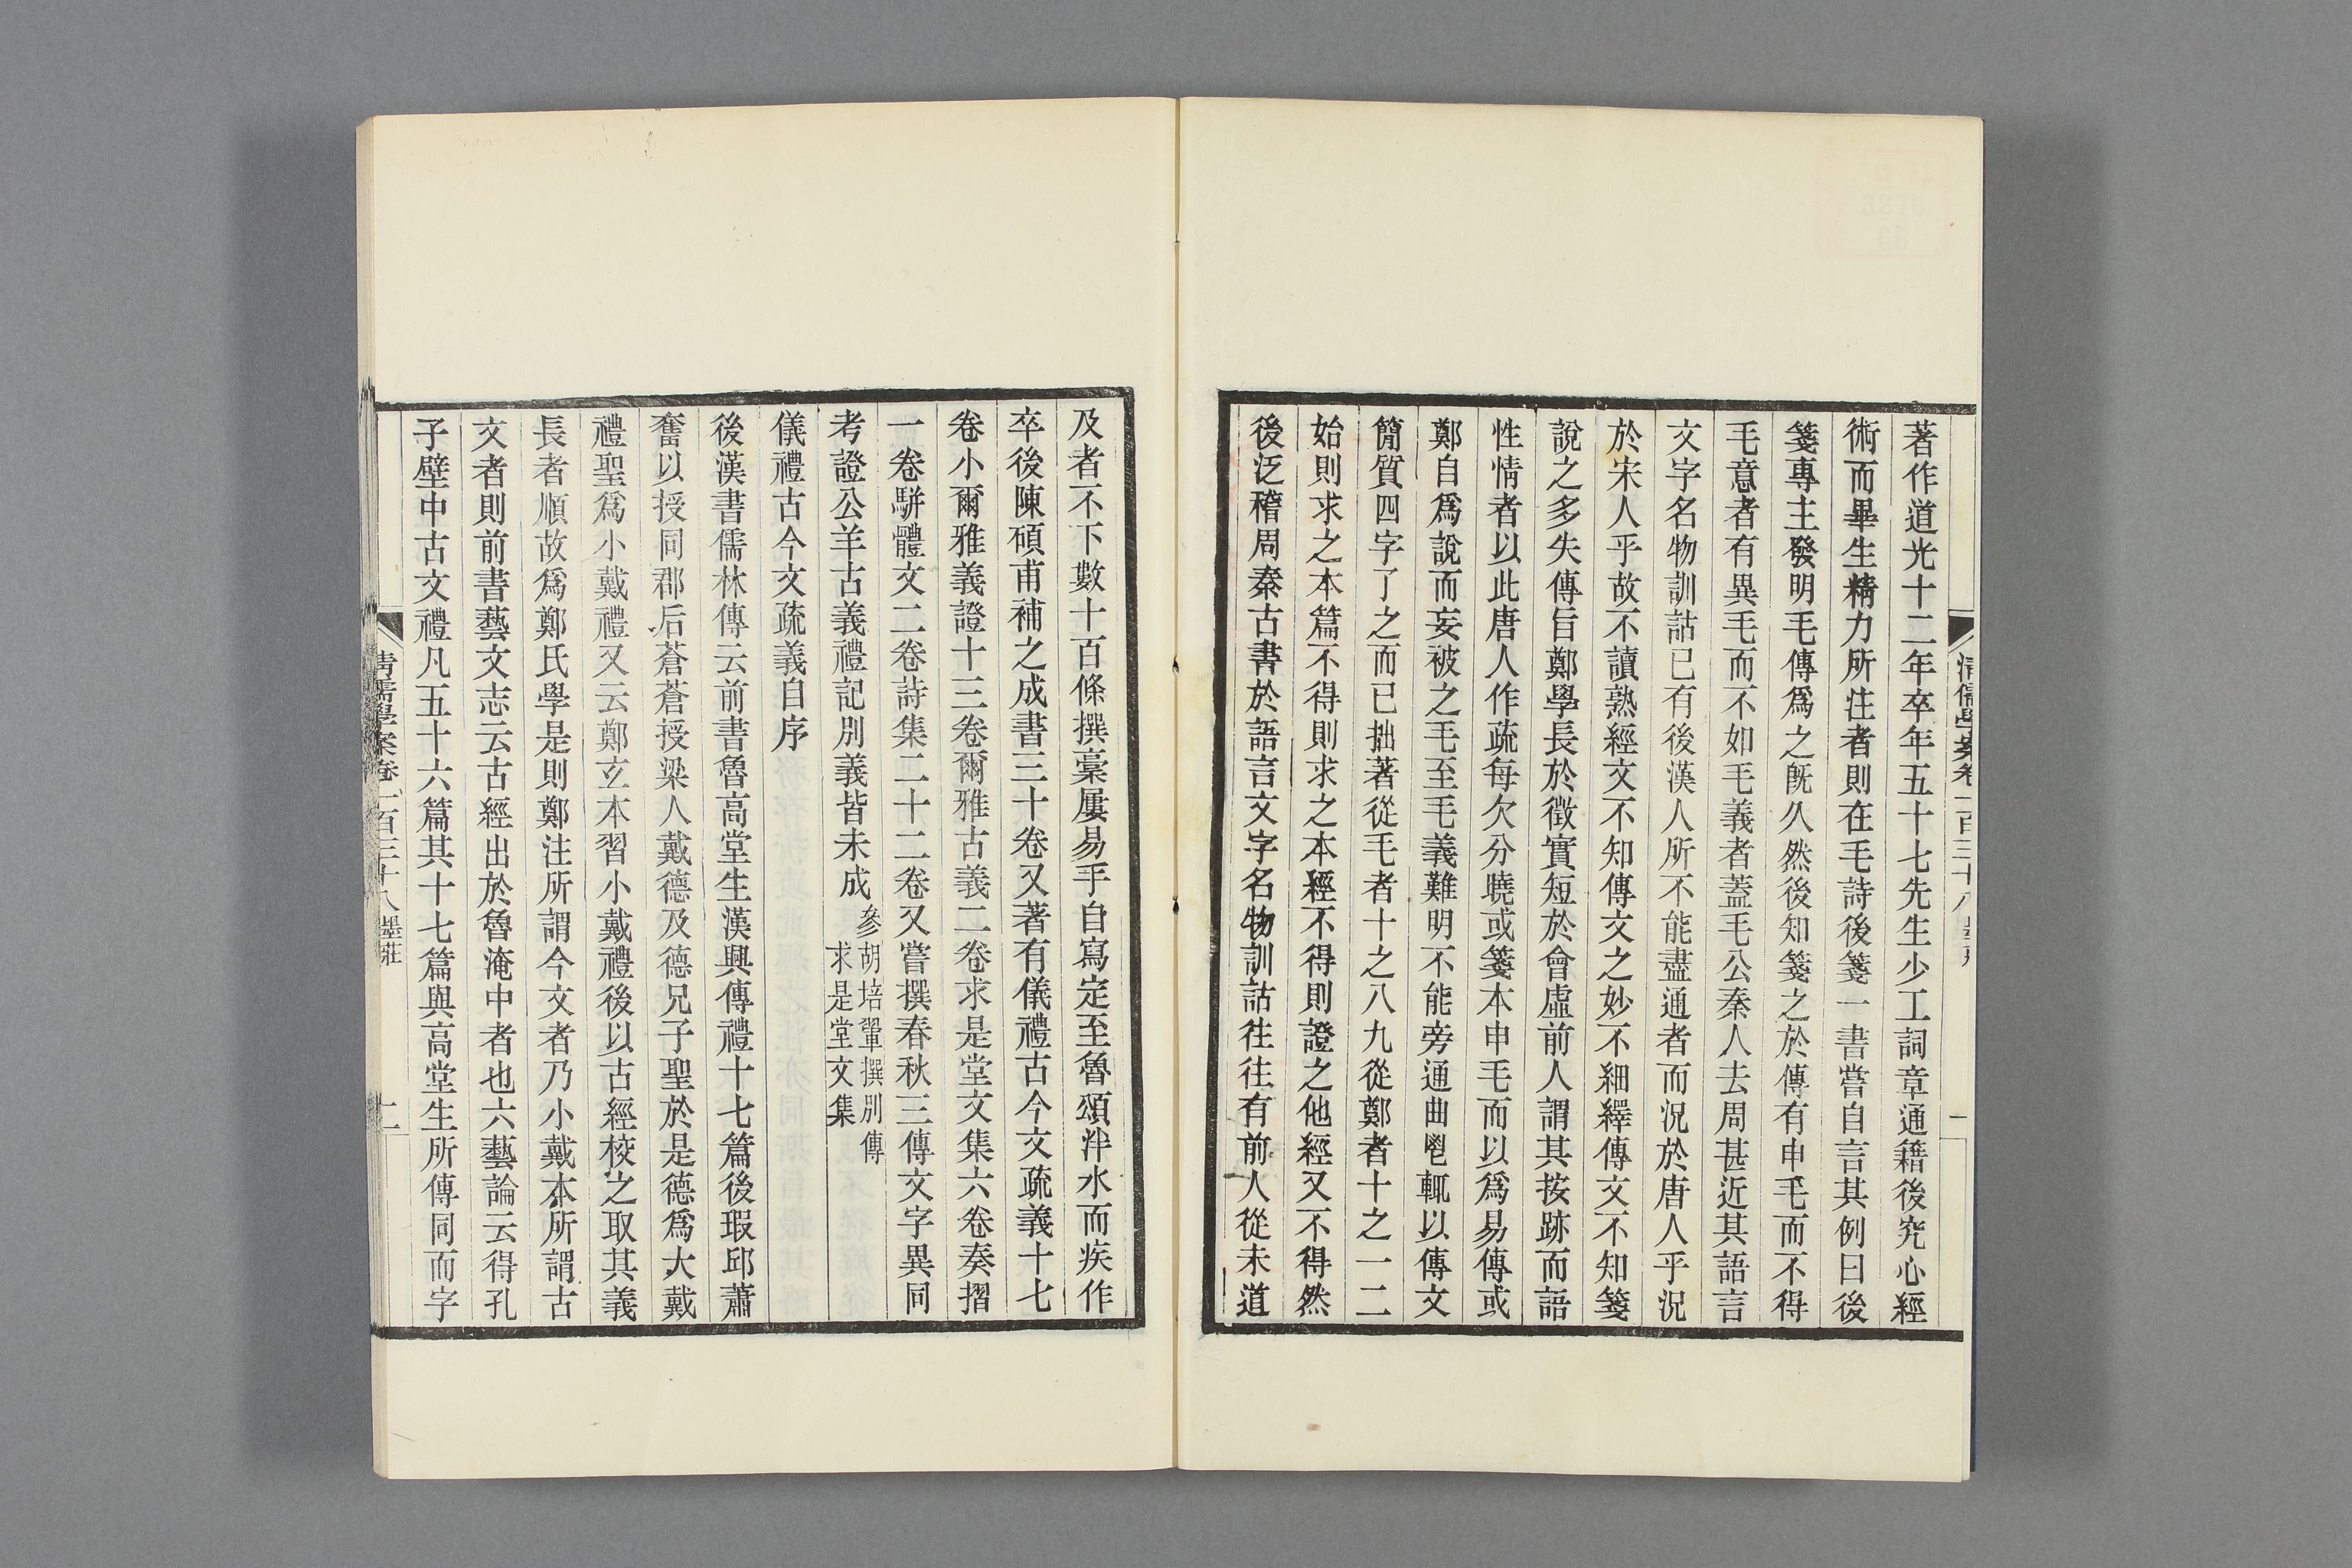 清儒學案卷一百三十八
一
著作道光十二年卒年五十七先生少工詞章通籍後究心經
術而畢生精力所注者則在毛詩後箋一書嘗自言其例曰後
箋專主發明毛傳爲之旣久然後知箋之於傳有申毛而不得
毛意者有異毛而不如毛義者蓋毛公秦人去周甚近其語言
文字名物訓詁已有後漢人所不能盡通者而況於唐人乎況
於宋人乎故不讀熟經文不知傳文之妙不細繹傳文不知箋
說之多失傳旨鄭學長於徵實短於會虛前人謂其按跡而語
性情者以此唐人作疏每欠分曉或箋本申毛而以爲易傳或
鄭自爲說而妄被之毛至毛義難明不能旁通曲鬯輒以傳文
簡質四字了之而已拙著從毛者十之八九從鄭者十之一二
始則求之本篇不得則求之本經不得則證之他經又不得然
後泛稽周秦古書於語言文字名物訓詁往往有前人從未道
及者不下數十百條撰稾屢易手自寫定至魯頌泮水而疾作
卒後陳碩甫補之成書三十卷又著有儀禮古今文疏義十七
卷小爾雅義證十三卷爾雅古義二卷求是堂文集六卷奏摺
一卷駢體文二卷詩集二十二卷又嘗撰春秋三傳文字異同
考證公羊古義禮記別義皆未成
參胡培翬撰別傳
求是堂文集
儀禮古今文疏義自序
後漢書儒林傳云前書魯高堂生漢興傳禮十七篇後瑕邱蕭
奮以授同郡后蒼蒼授梁人戴德及德兄子聖於是德爲大戴
禮聖爲小戴禮又云鄭玄本習小戴禮後以古經校之取其義
長者順故爲鄭氏學是則鄭注所謂今文者乃小戴本所謂古
文者則前書藝文志云古經出於魯淹中者也六藝論云得孔
子壁中古文禮凡五十六篇其十七篇與高堂生所傳同而字
清儒學案卷一百三十八 墨莊
二